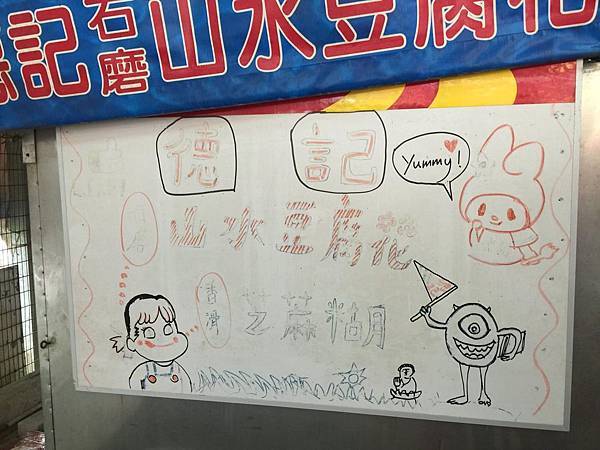 德記石磨山水豆腐花
德記
Yummy!
石磨
山水豆腐花
香滑
芝麻糊